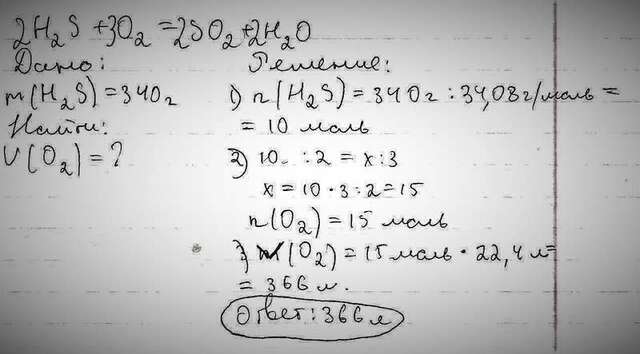 2H₂S + 3O₂ = 2SO₂ + 2H₂O
Дано:
m(H₂S) = 340 г
Найти:
V(O₂) = ?
Решение:
1) n(H₂S) = 340 г : 34,08 г/моль =
= 10 моль
2) 10 : 2 = x : 3
x = 10 · 3 : 2 = 15
n(O₂) = 15 моль
3) (O₂) = 15 моль · 22,4 л =
= 366 л.
Ответ: 366 л